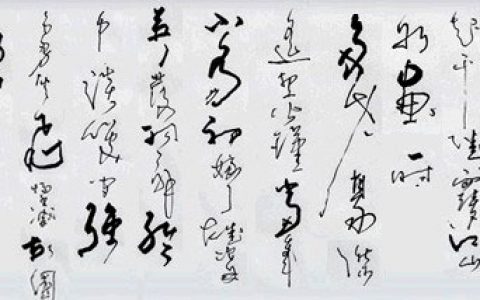 起千堆雪江山
如画一时
多少豪杰
遥想公瑾当年
小乔初嫁了雄姿
英发羽扇纶
巾谈笑间强
飞烟灭故国